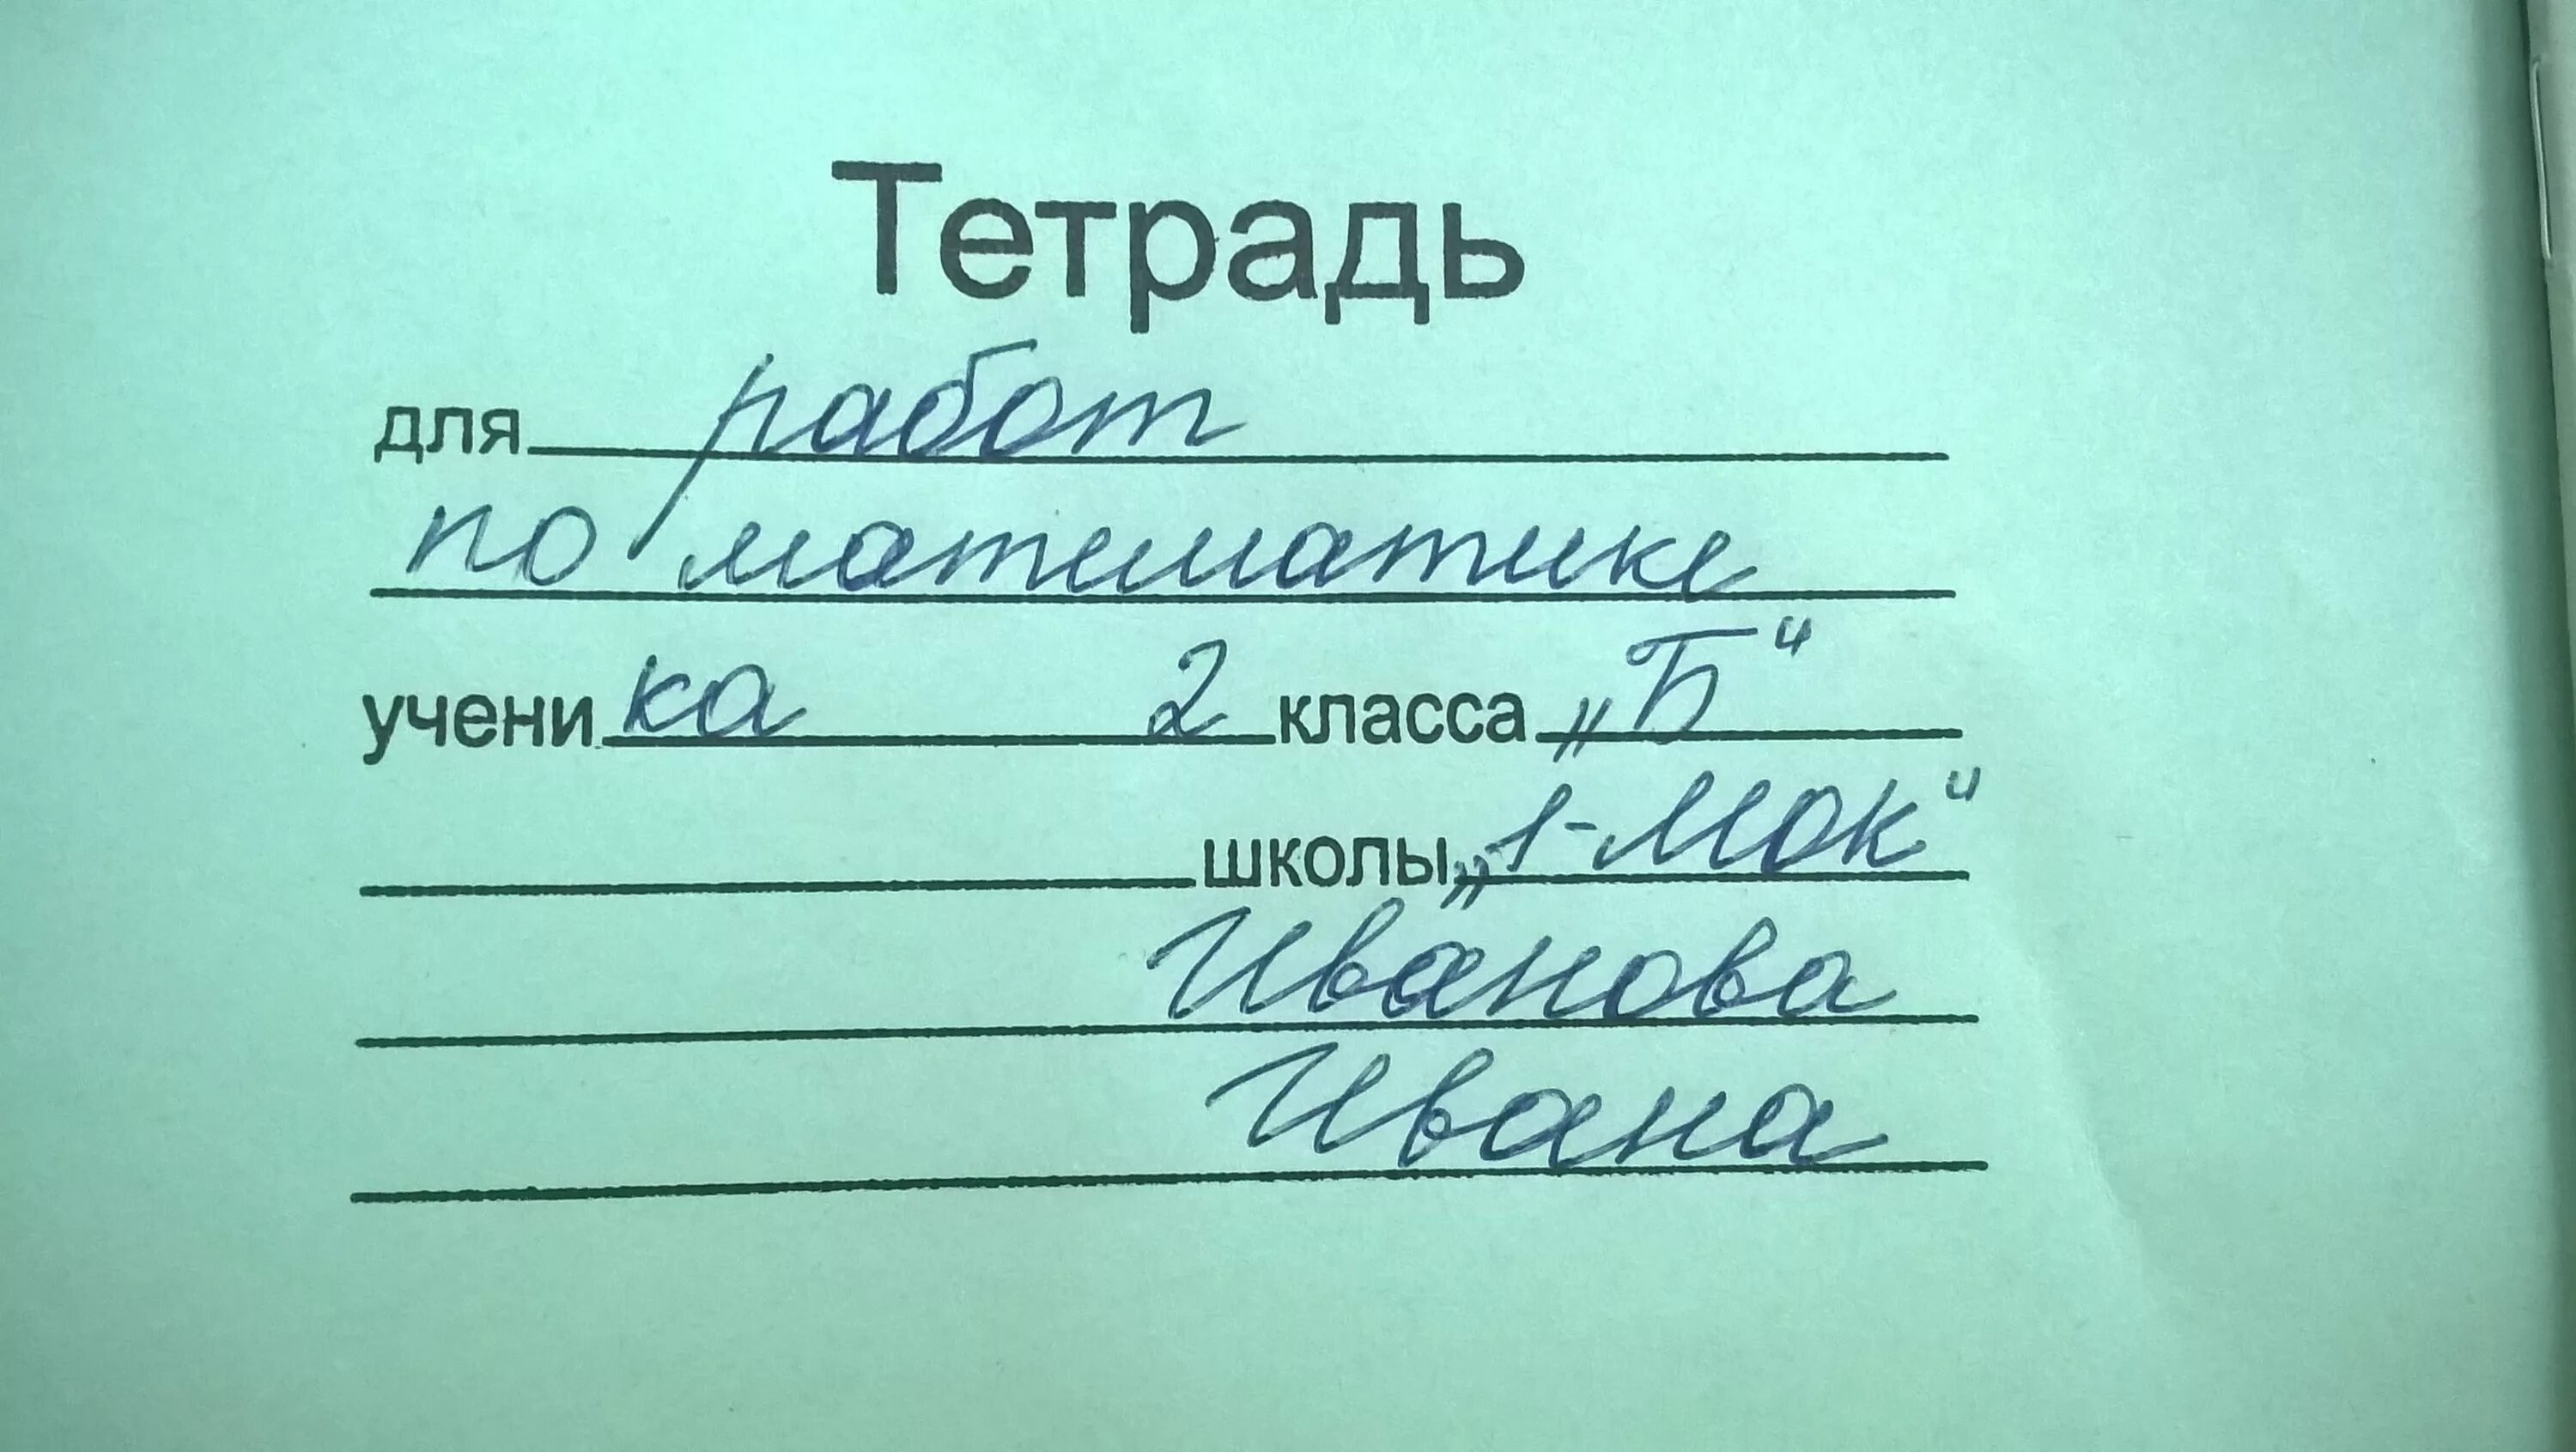 Тетрадь
для работ
по математике
ученика 2 класса „Б“
школы „1-Мок“
Иванова
Ивана